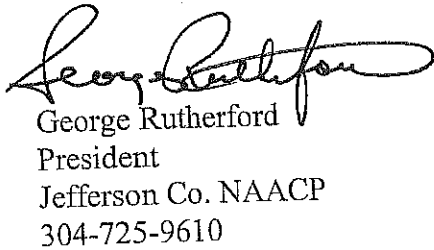 George Rutherford
George Rutherford
President
Jefferson Co. NAACP
304-725-9610